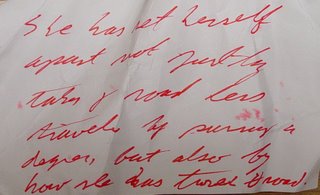 She has set herself
apart not just by
taking road less
traveled by pursuing a
degree, but also by
how she has turned road.